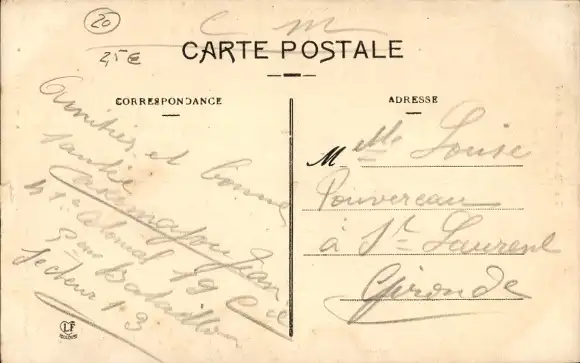 20
25€
C M
CARTE POSTALE
CORRESPONDANCE
ADRESSE
Amitiés et bonne
santé
Jean
1er Colonial 19 Cie
Bataillon
Secteur 13
Melle Louise
Pouvereau
à St Laurent
Gironde
LF